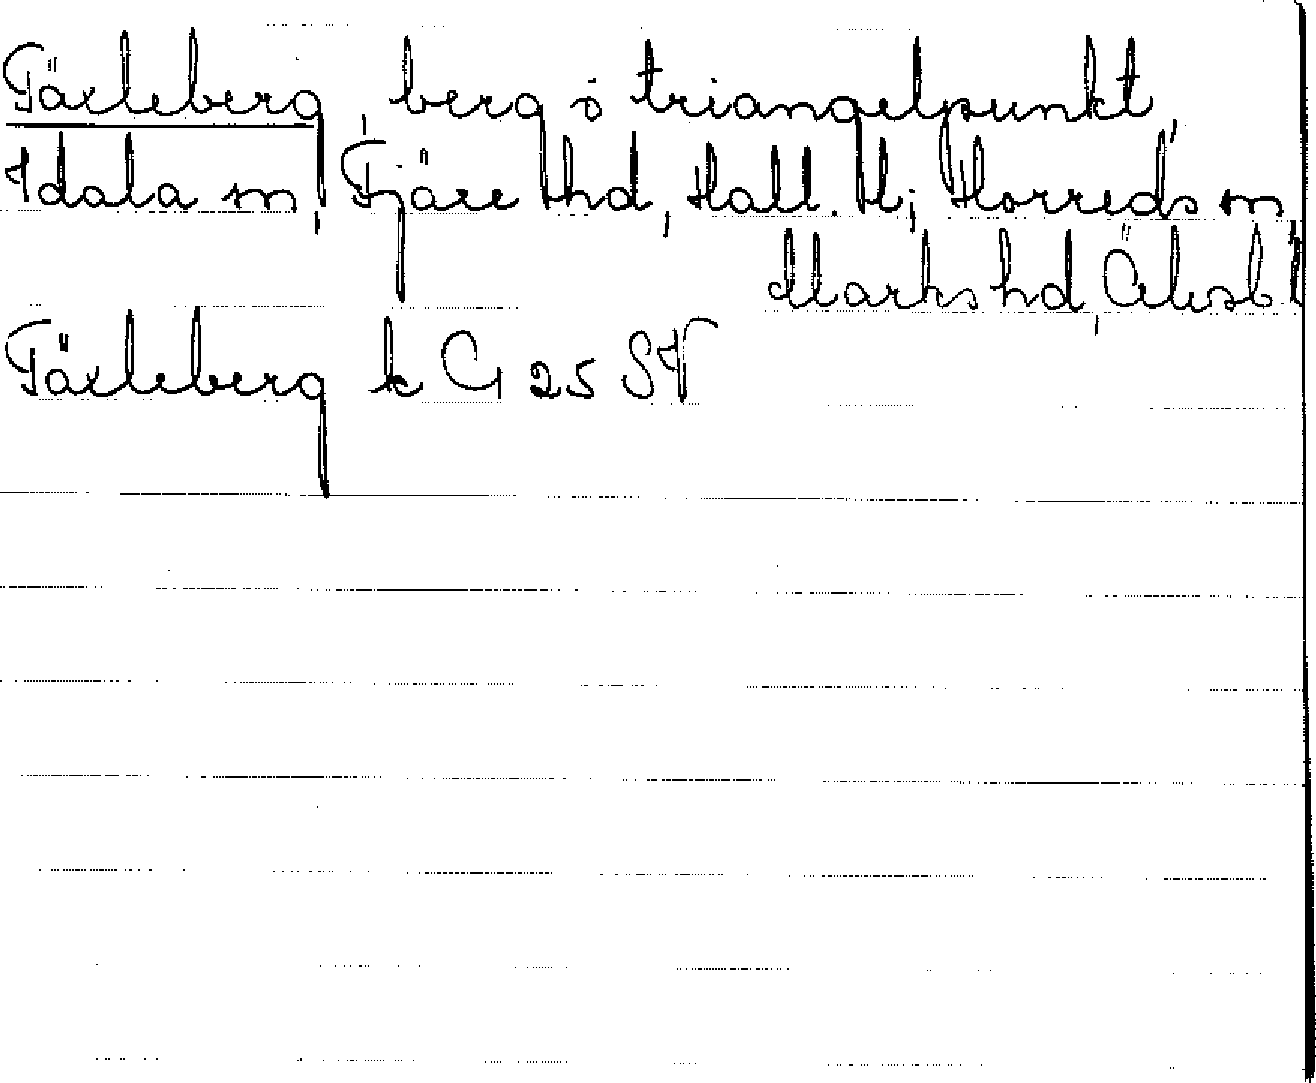 Fäxleberg, berg o triangelpunkt,
Idala sn, Fjäre hd, Hall. l; Horreds sn
Marks hd, Älvsb l
Fäxleberg k G 25 SV